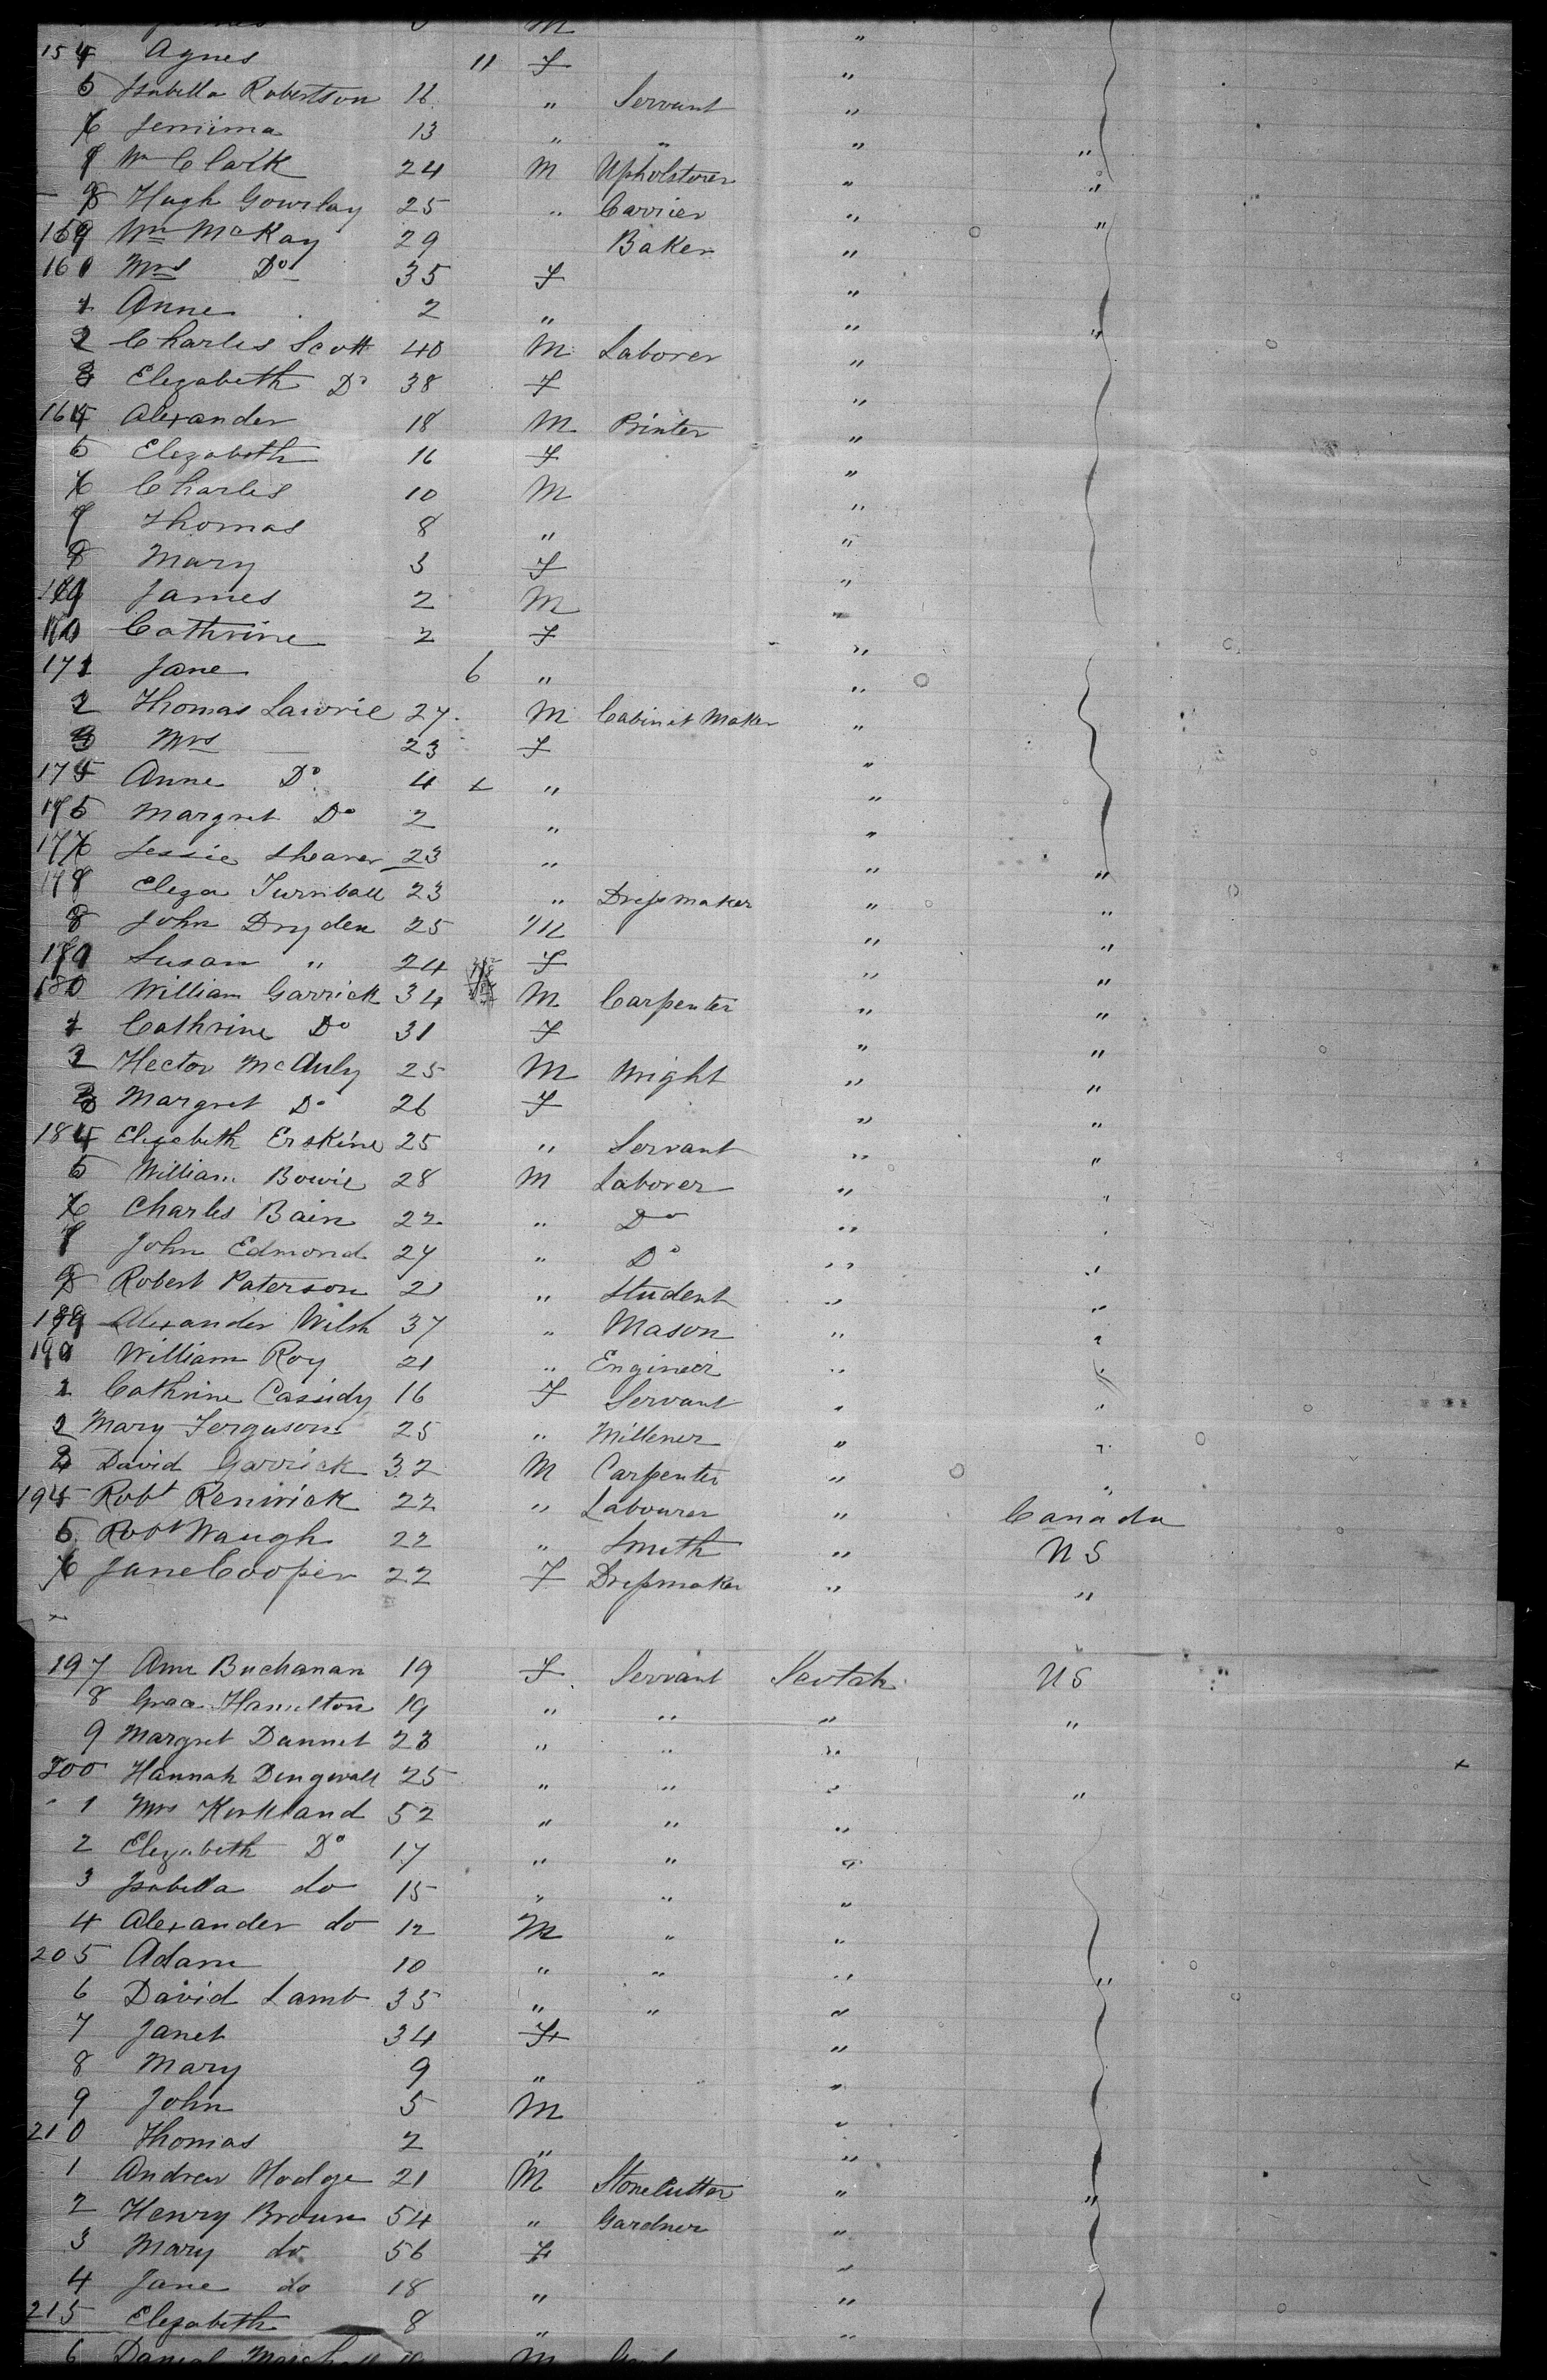 154 Agnes 11 F "
5 Isabella Robertson 16 " Servant "
6 Jemima 13 " " "
7 Wm Clark 24 M Upholsterer " "
8 Hugh Gowrlay 25 " Carrier " "
159 Wm McKay 29 Baker " "
160 Mrs Do 35 F "
1 Anne 2 " "
2 Charles Scott 40 M Laborer " "
3 Elezabeth Do 38 F "
164 Alexander 18 M Printer "
5 Elezabeth 16 F "
6 Charles 10 M "
7 Thomas 8 " "
8 Mary 3 F "
169 James 2 M "
170 Cathrine 2 F "
171 Jane 6 " "
2 Thomas Lawrie 27 M Cabinet Maker "
3 Mrs — 23 F "
174 Anne Do 4 " "
175 Margret Do 2 " "
176 Jessie Shearer 23 " " "
177 Eleza Turnball 23 " Dressmaker " "
8 John Dryden 25 M " "
179 Susan " 24 F " "
180 William Garrick 34 M Carpenter " "
1 Cathrine Do 31 F " "
2 Hector McAuly 25 M Wright " "
3 Margret Do 26 F " "
184 Elezabeth Erskine 25 " Servant " "
5 William Bowie 28 M Laborer " "
6 Charles Bain 22 " Do " "
7 John Edmond 27 " Do " "
8 Robert Paterson 21 " Student " "
189 Alexander Wilsh 37 " Mason " "
190 William Roy 21 " Engineer " "
1 Cathrine Casiidy 16 F Servant " "
2 Mary Ferguson 25 " Millener " "
3 David Garrick 32 M Carpenter " "
194 Robt Renwick 22 " Labourer " Canada
5 Robt Waugh 22 " Smith " US
6 Jane Cooper 22 F Dressmaker " "
197 Ann Buchanan 19 F Servant Scotch US
8 Grace Hamilton 19 " " " "
9 Margret Dannet 23 " " "
200 Hannah Dingwall 25 " " " "
1 Mrs Kirkland 52 " " "
2 Elezabeth Do 17 " " "
3 Isabella do 15 " " "
4 Alexander do 12 M " "
205 Adam 10 " " " "
6 David Lamb 35 " " "
7 Janet 34 F "
8 Mary 9 " "
9 John 5 M "
210 Thomas 2 " "
1 Andrew Hodge 21 M Stonecutter " "
2 Henry Broun 54 " Gardner "
3 Mary do 56 F "
4 Jane do 18 " "
215 Elezabeth 8 " "
6 Daniel M